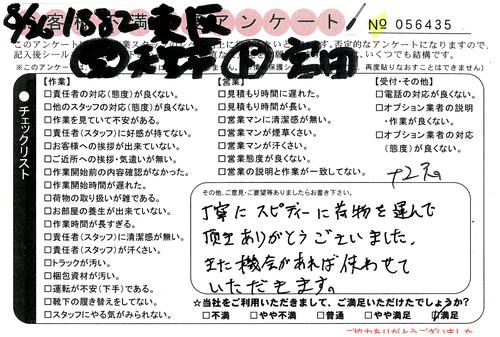 お客様満足アンケート
№ 056435
8/26
記入後シール
いくつでも結構です。
【作業】
□責任者の対応(態度)が良くない。
□他のスタッフの対応(態度)が良くない。
□作業を見ていて不安がある。
□責任者(スタッフ)に好感が持てない。
□お客様への挨拶が出来ていない。
□ご近所への挨拶・気遣いが無い。
□作業開始前の内容確認がなかった。
□作業開始時間が遅れた。
□荷物の取り扱いが雑である。
□お部屋の養生が出来ていない。
□作業時間が長すぎる。
□責任者(スタッフ)に清潔感が無い。
□責任者(スタッフ)が汗くさい。
□トラックが汚い。
□梱包資材が汚い。
□運転が不安(下手)である。
□靴下の履き替えをしてない。
□スタッフにやる気がみられない。
【営業】
□見積もり時間に遅れた。
□見積もり時間が長い。
□営業マンに清潔感が無い。
□営業マンが煙草くさい。
□営業マンが汗くさい。
□営業態度が良くない。
□営業の説明と作業が一致してない。
【受付・その他】
□電話の対応が良くない。
□オプション業者の説明
・作業が良くない。
□オプション業者の対応
(態度)が良くない。
チェックリスト
その他、ご意見・ご要望等ありましたらお書き下さい。
丁寧にスピディーに荷物を運んで
頂きありがとうございました。
また機会があれば使わせて
いただきます。
☆当社をご利用いただきまして、ご満足いただけたでしょうか?
□不満 □やや不満 □普通 □やや満足 □満足
ご協力ありがとうございました